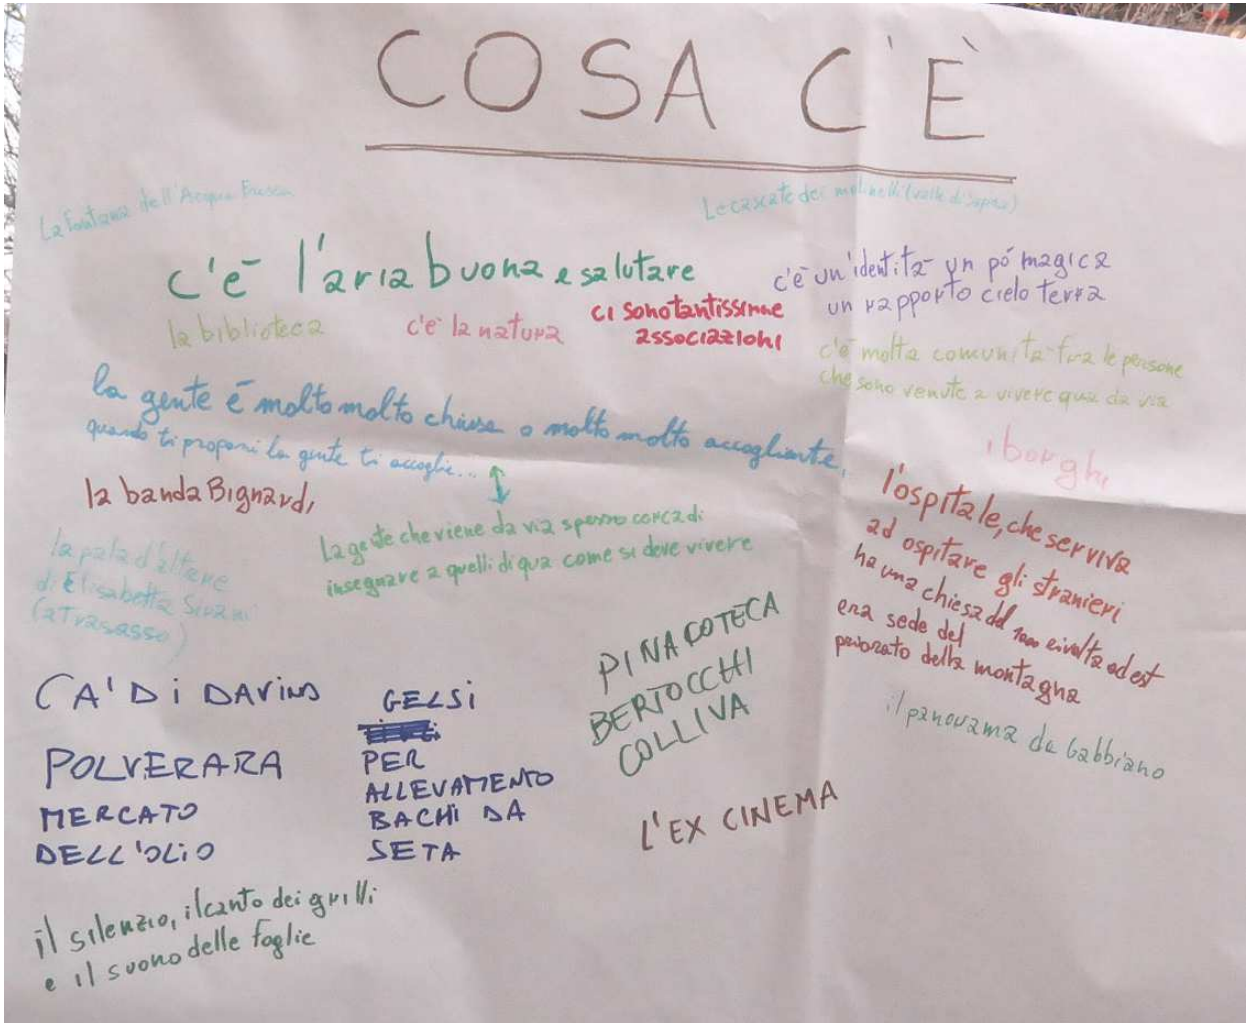 COSA C'È
La fontana dell'Acqua Fresca
Le cascate dei molinelli (valle di Sapino)
c'è l'aria buona e salutare
c'è un'identità un pó magica
un rapporto cielo terra
la biblioteca
c'è la natura
ci sono tantissime
associazioni
c'è molta comunità fra le persone
che sono venute a vivere qua da via
la gente é molto molto chiusa o molto molto accogliente,
quando ti proponi la gente ti accoglie...
i borghi
la banda Bignardi
La gente che viene da via spesso cerca di
insegnare a quelli di qua come si deve vivere
la pala d'altare
di Elisabetta Sirani
(a Trasasso)
l'ospitale, che serviva
ad ospitare gli stranieri
ha una chiesa del 1000 rivolta ad est
era sede del
priorato della montagna
il panorama da Gabbiano
CA' Di DAViNO
POLVERARA
MERCATO
DELL'OLiO
GELSi
PER
ALLEVAMENTO
BACHi DA
SETA
PINACOTECA
BERTOCCHI
COLLIVA
L'EX CINEMA
il silenzio, il canto dei grilli
e il suono delle foglie